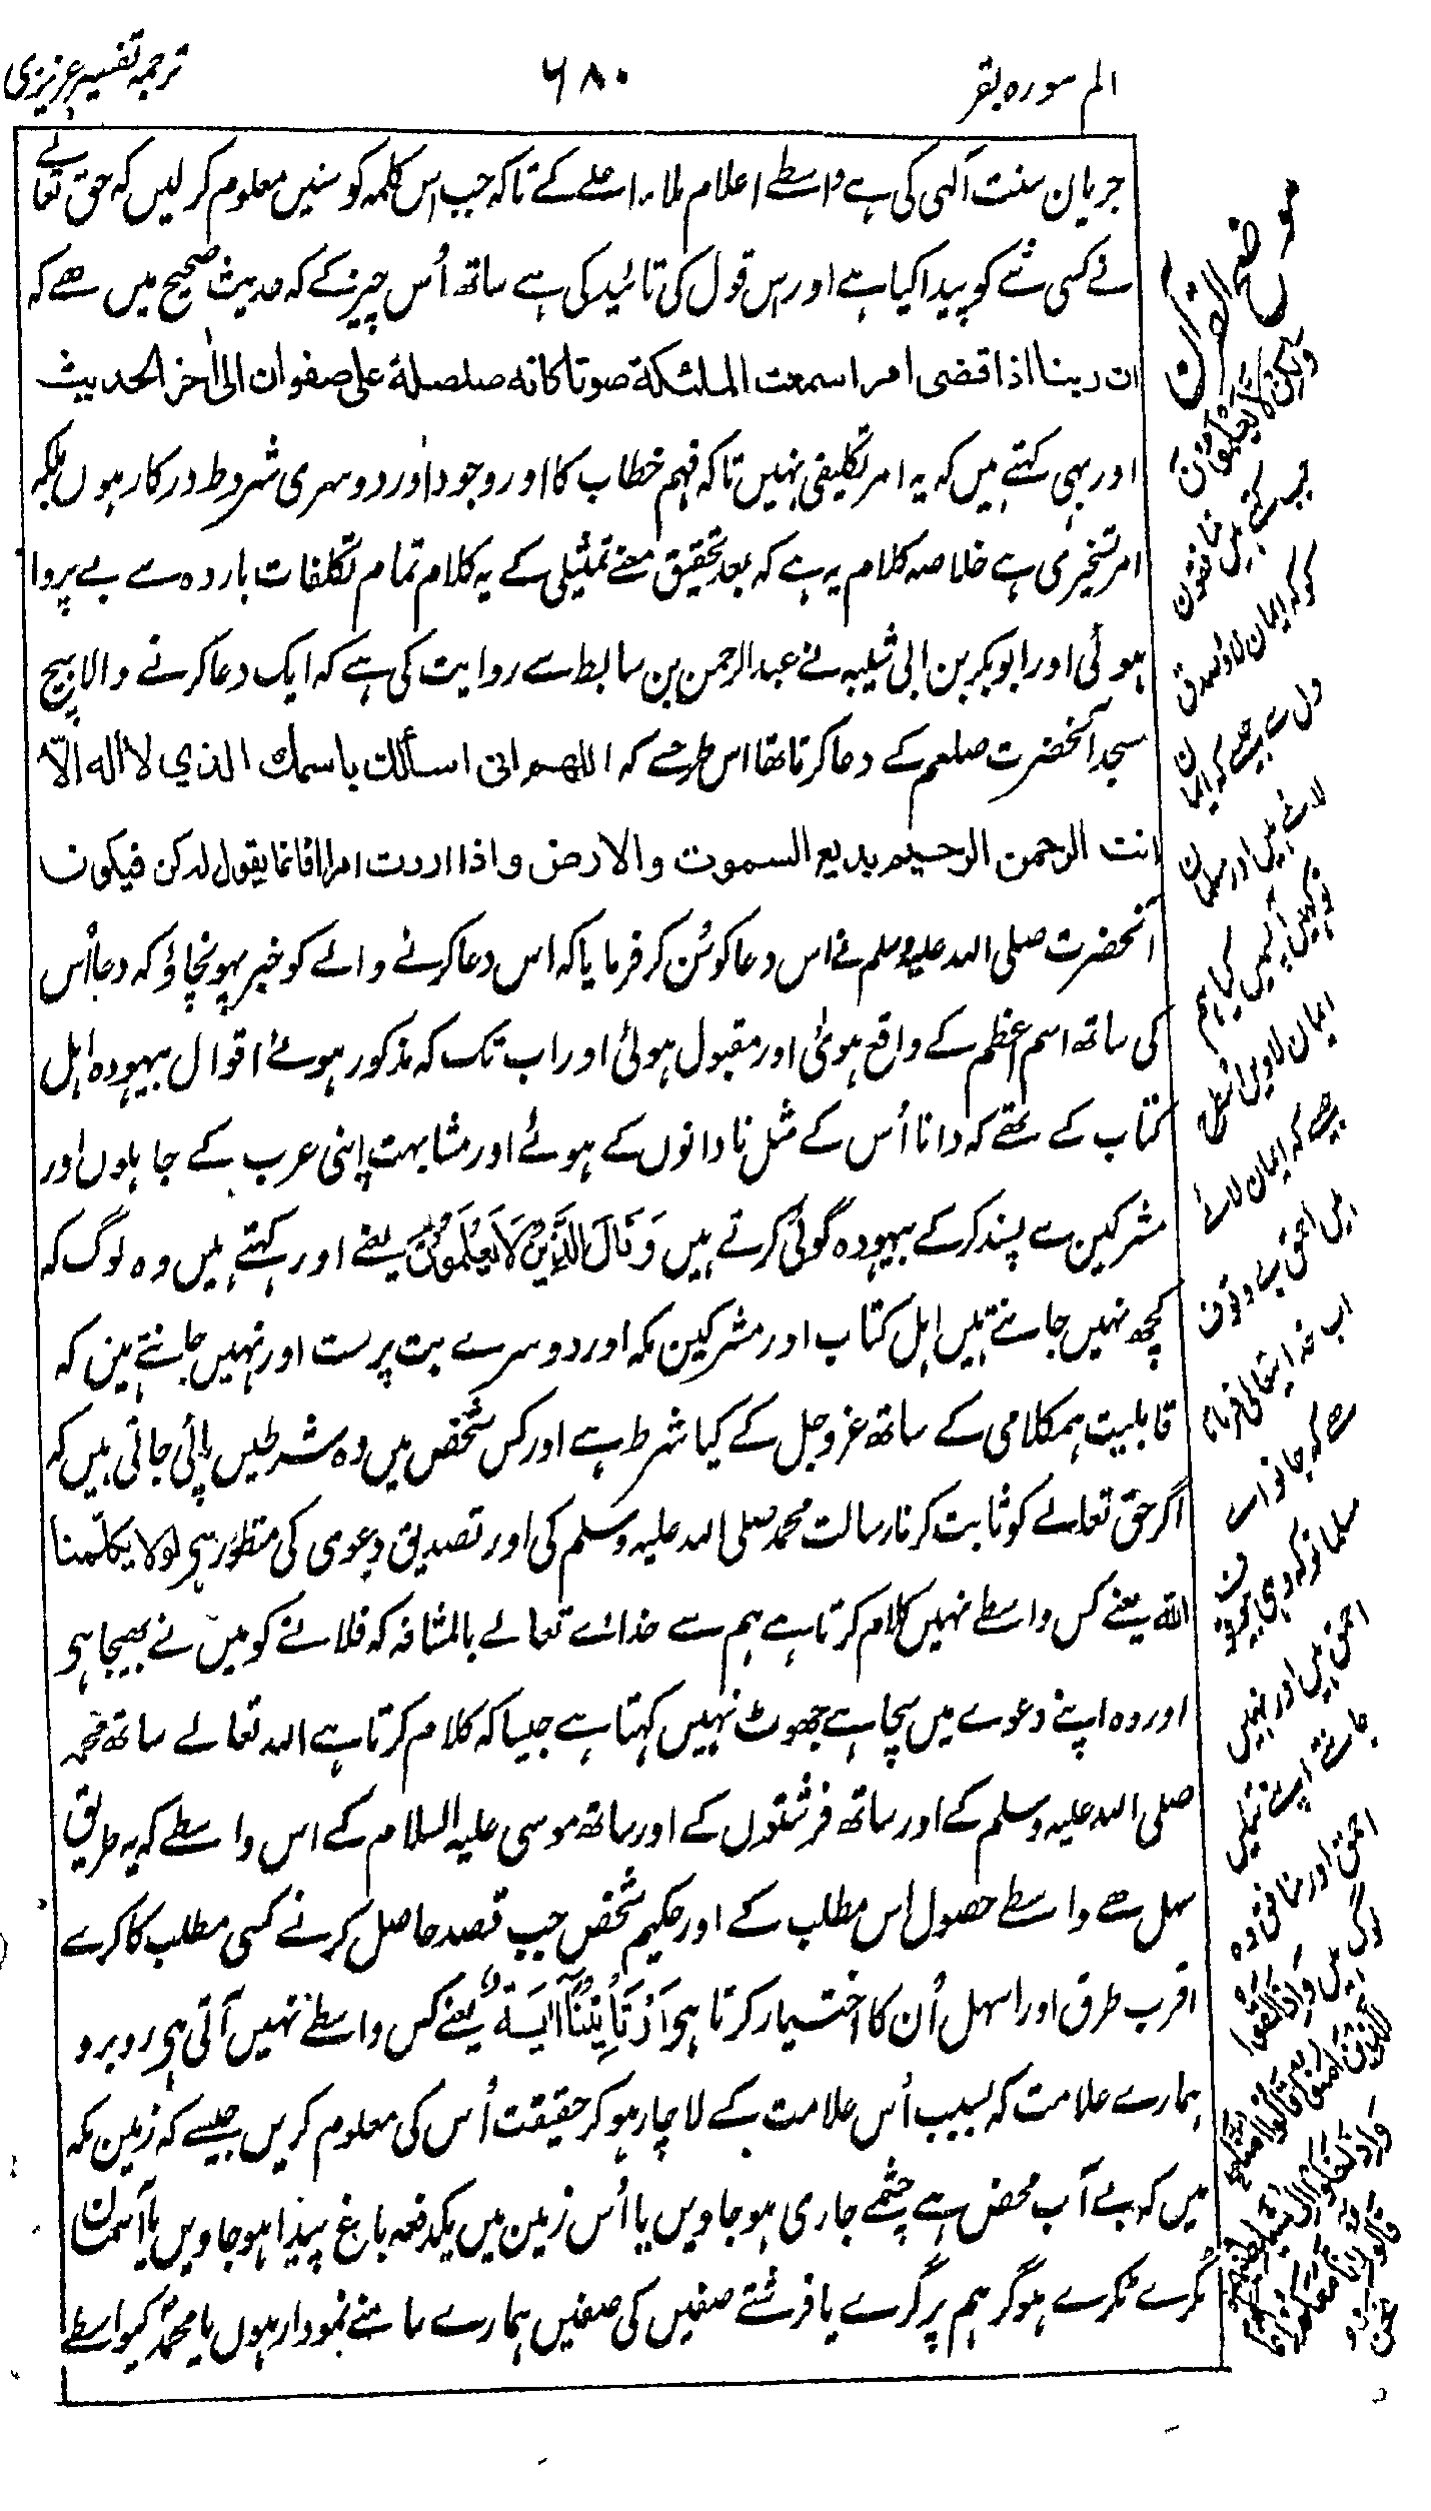 الم سورہ بقر
۶۸۰
ترجمہ تفسیر عزیزی
جریان سنت الٰہی کی ہے واسطے اعلام ملاء اعلے کے تاکہ جب اس کلمہ کو سنیں معلوم کرلیں کہ حق تعالے
نے کسی شے کو پیدا کیا ہے اور اس قول کی تائید کی ہے ساتھ اُس چیز کے کہ حدیث صحیح میں ھے کہ
ان ربنا اذا قضی امرا سمعت الملئکة صوتا کانه صلصلة علی صفوان الی اٰخر الحدیث
اور یہی کہتے ہیں کہ یہ امر تکلیفی نہیں تاکہ فہم خطاب کا اور وجود اور دوسری شروط درکار ہوں بلکہ
امر تسخیری ہے خلاصہ کلام یہ ہے کہ بعد تحقیق معنے تمثیلی کے یہ کلام تمام تکلفات باردہ سے بے پروا
ہوئی اور ابوبکر بن ابی شیبہ نے عبدالرحمن بن سابط سے روایت کی ہے کہ ایک دعا کرنے والا بیچ
مسجد آنحضرت صلعم کے دعا کرتا تھا اس طرح سے کہ اللھم انی اسألك باسمك الذي لا اله الّا
انت الرحمن الرحیم بدیع السموت والارض واذا اردت امرا فانما یقول له کن فیکون
آنحضرت صلی اللہ علیہ وسلم نے اس دعا کو سُن کر فرمایا کہ اس دعا کرنے والے کو خبر پہونچاؤ کہ دعا اُس
کی ساتھ اسم اعظم کے واقع ہوئی اور مقبول ہوئی اور اب تک کہ مذکور ہوئے اقوال بیہودہ اہل
کتاب کے تھے کہ دانا اُس کے مثل نادانوں کے ہوئے اور مشابہت اپنی عرب کے جاہلوں اور
مشرکین سے پسند کرکے بیہودہ گوئی کرتے ہیں وَقَالَ الَّذِيْنَ لَا يَعْلَمُوْنَ یعنے اور کہتے ہیں وہ لوگ کہ
کچھ نہیں جانتے ہیں اہل کتاب اور مشرکین مکہ اور دوسرے بت پرست اور نہیں جانتے ہین کہ
قابلیت ہمکلامی کے ساتھ عزوجل کے کیا شرط ہے اور کس شخص میں وہ شرطیں پائی جاتی ہیں کہ
اگر حق تعالے کو ثابت کرنا رسالت محمد صلی اللہ علیہ وسلم کی اور تصدیق دعوی کی منظور ہی لولا یکلّمنا
اللہ یعنے کس واسطے نہیں کلام کرتا ہے ہم سے خدائے تعالے بالمشافہ کہ فلانے کو میں نے بھیجا ہی
اور وہ اپنے دعوے میں سچا ہے جھوٹ نہیں کہتا ہے جیسا کہ کلام کرتا ہے اللہ تعالے ساتھ محمد
صلی اللہ علیہ وسلم کے اور ساتھ فرشتوں کے اور ساتھ موسی علیہ السلام کے اس واسطے کہ یہ طریق
سہل ھے واسطے حصول اس مطلب کے اور حکیم شخص جب قصد حاصل کرنے کسی مطلب کا کرے
اقرب طرق اور اسہل اُن کا اختیار کرتا ہی اَوْ تَأْتِيْنَا اٰيَةٌ یعنے کس واسطے نہیں آتی ہی روبرو
ہمارے علامت کہ بسبب اُس علامت کے لاچار ہوکر حقیقت اُس کی معلوم کریں جیسے کہ زمین مکہ
میں کہ بے آب محض ہے چشمے جاری ہوجاویں یا اُس زمین میں یکدفعہ باغ پیدا ہوجاویں یا آسمان
ٹکرے ٹکرے ہوکر ہم پر گرے یا فرشتے صفیں کی صفیں ہمارے سامنے نمودار ہوں یا محمدؐ کیواسطے
موضح القرآن
وَلٰكِنْ لَّا يَعْلَمُوْنَ
جب کہتے ہیں منافقون
کو کہ ایمان لاؤ صدق
دل سے جیسے کہ ایمان
لائے ہیں اور مسلمان
تو کہتے ہیں کیا ہم
ایمان لاویں اس طرح
جیسے کہ ایمان لائے
ہیں احمق بے وقوف
اب خدایتعالی فرماتا
ھے کہ جانو اے
مسلمانو کہ وہی بیوقوف
احمق ہیں اور نہیں
جانتے اپنے تئیں
احمق اور منافق وہ
لوگ ہیں وَاِذَا لَقُوا
الَّذِيْنَ اٰمَنُوْا قَالُوْا اٰمَنَّا
وَاِذَا خَلَوْا اِلٰى شَيٰطِيْنِهِمْ
قَالُوْا اِنَّا مَعَكُمْ اِنَّمَا